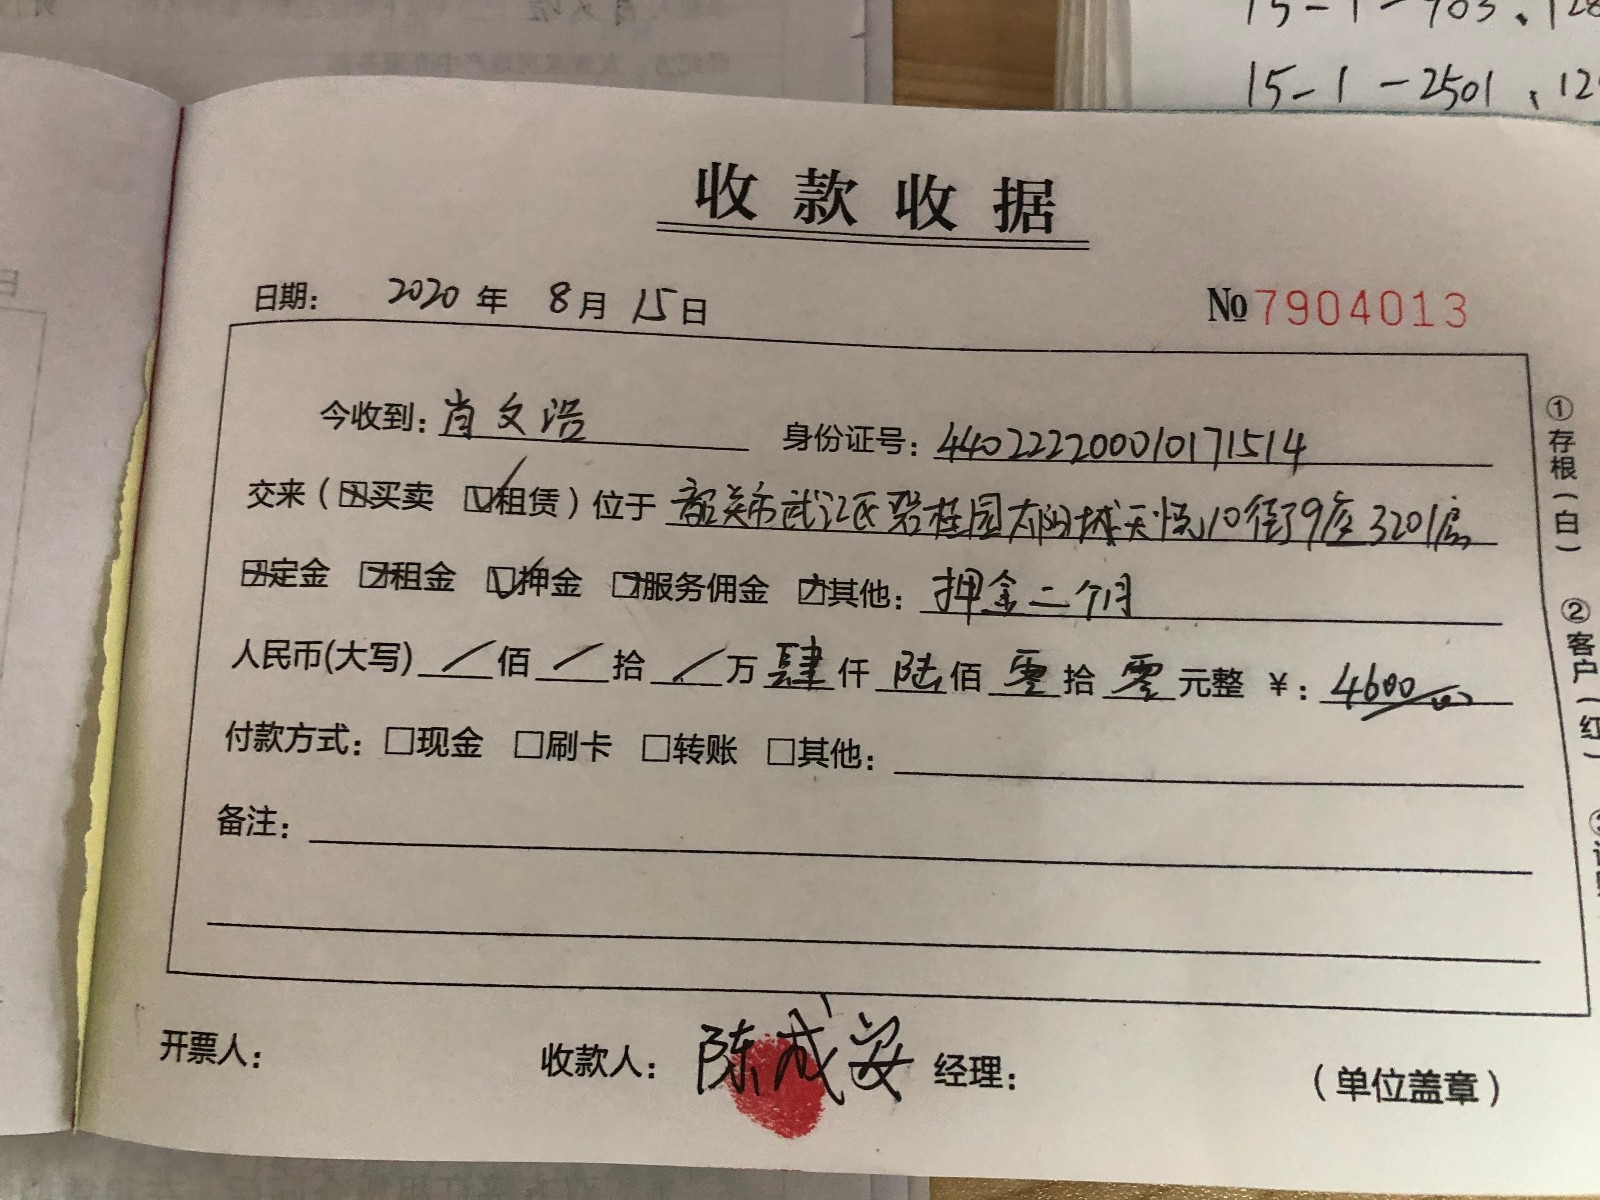 15-1-903、128
15-1-2501、12
收款收据
日期: 2020 年 8 月 15 日 №7904013
今收到: 肖文浩 身份证号: 440222200010171514
交来（☒买卖 ☑租赁）位于 韶关市武江区碧桂园太阳城天悦10街9座3201房
☒定金 ☒租金 ☑押金 ☒服务佣金 ☒其他: 押金二个月
人民币(大写) / 佰 / 拾 / 万 肆 仟 陆 佰 零 拾 零 元整 ¥: 4600
付款方式: □现金 □刷卡 □转账 □其他:
备注:
开票人: 收款人: 陈成安 经理: （单位盖章）
①存根(白) ②客户(红) ③